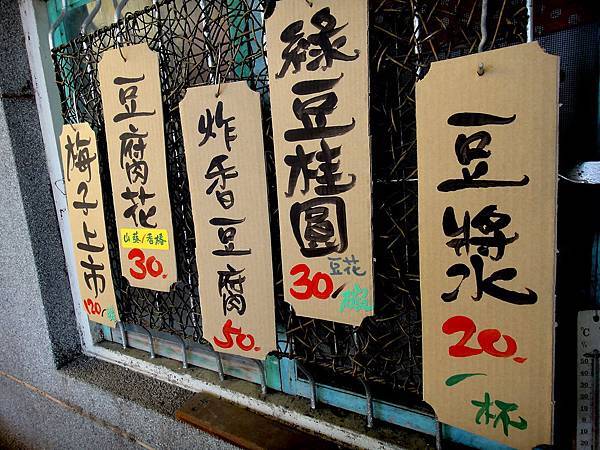 梅子上市
120/
豆腐花
山葵/香椿
30.
炸香豆腐
50.
綠豆桂圓
豆花
30/碗
豆漿
20.
一杯